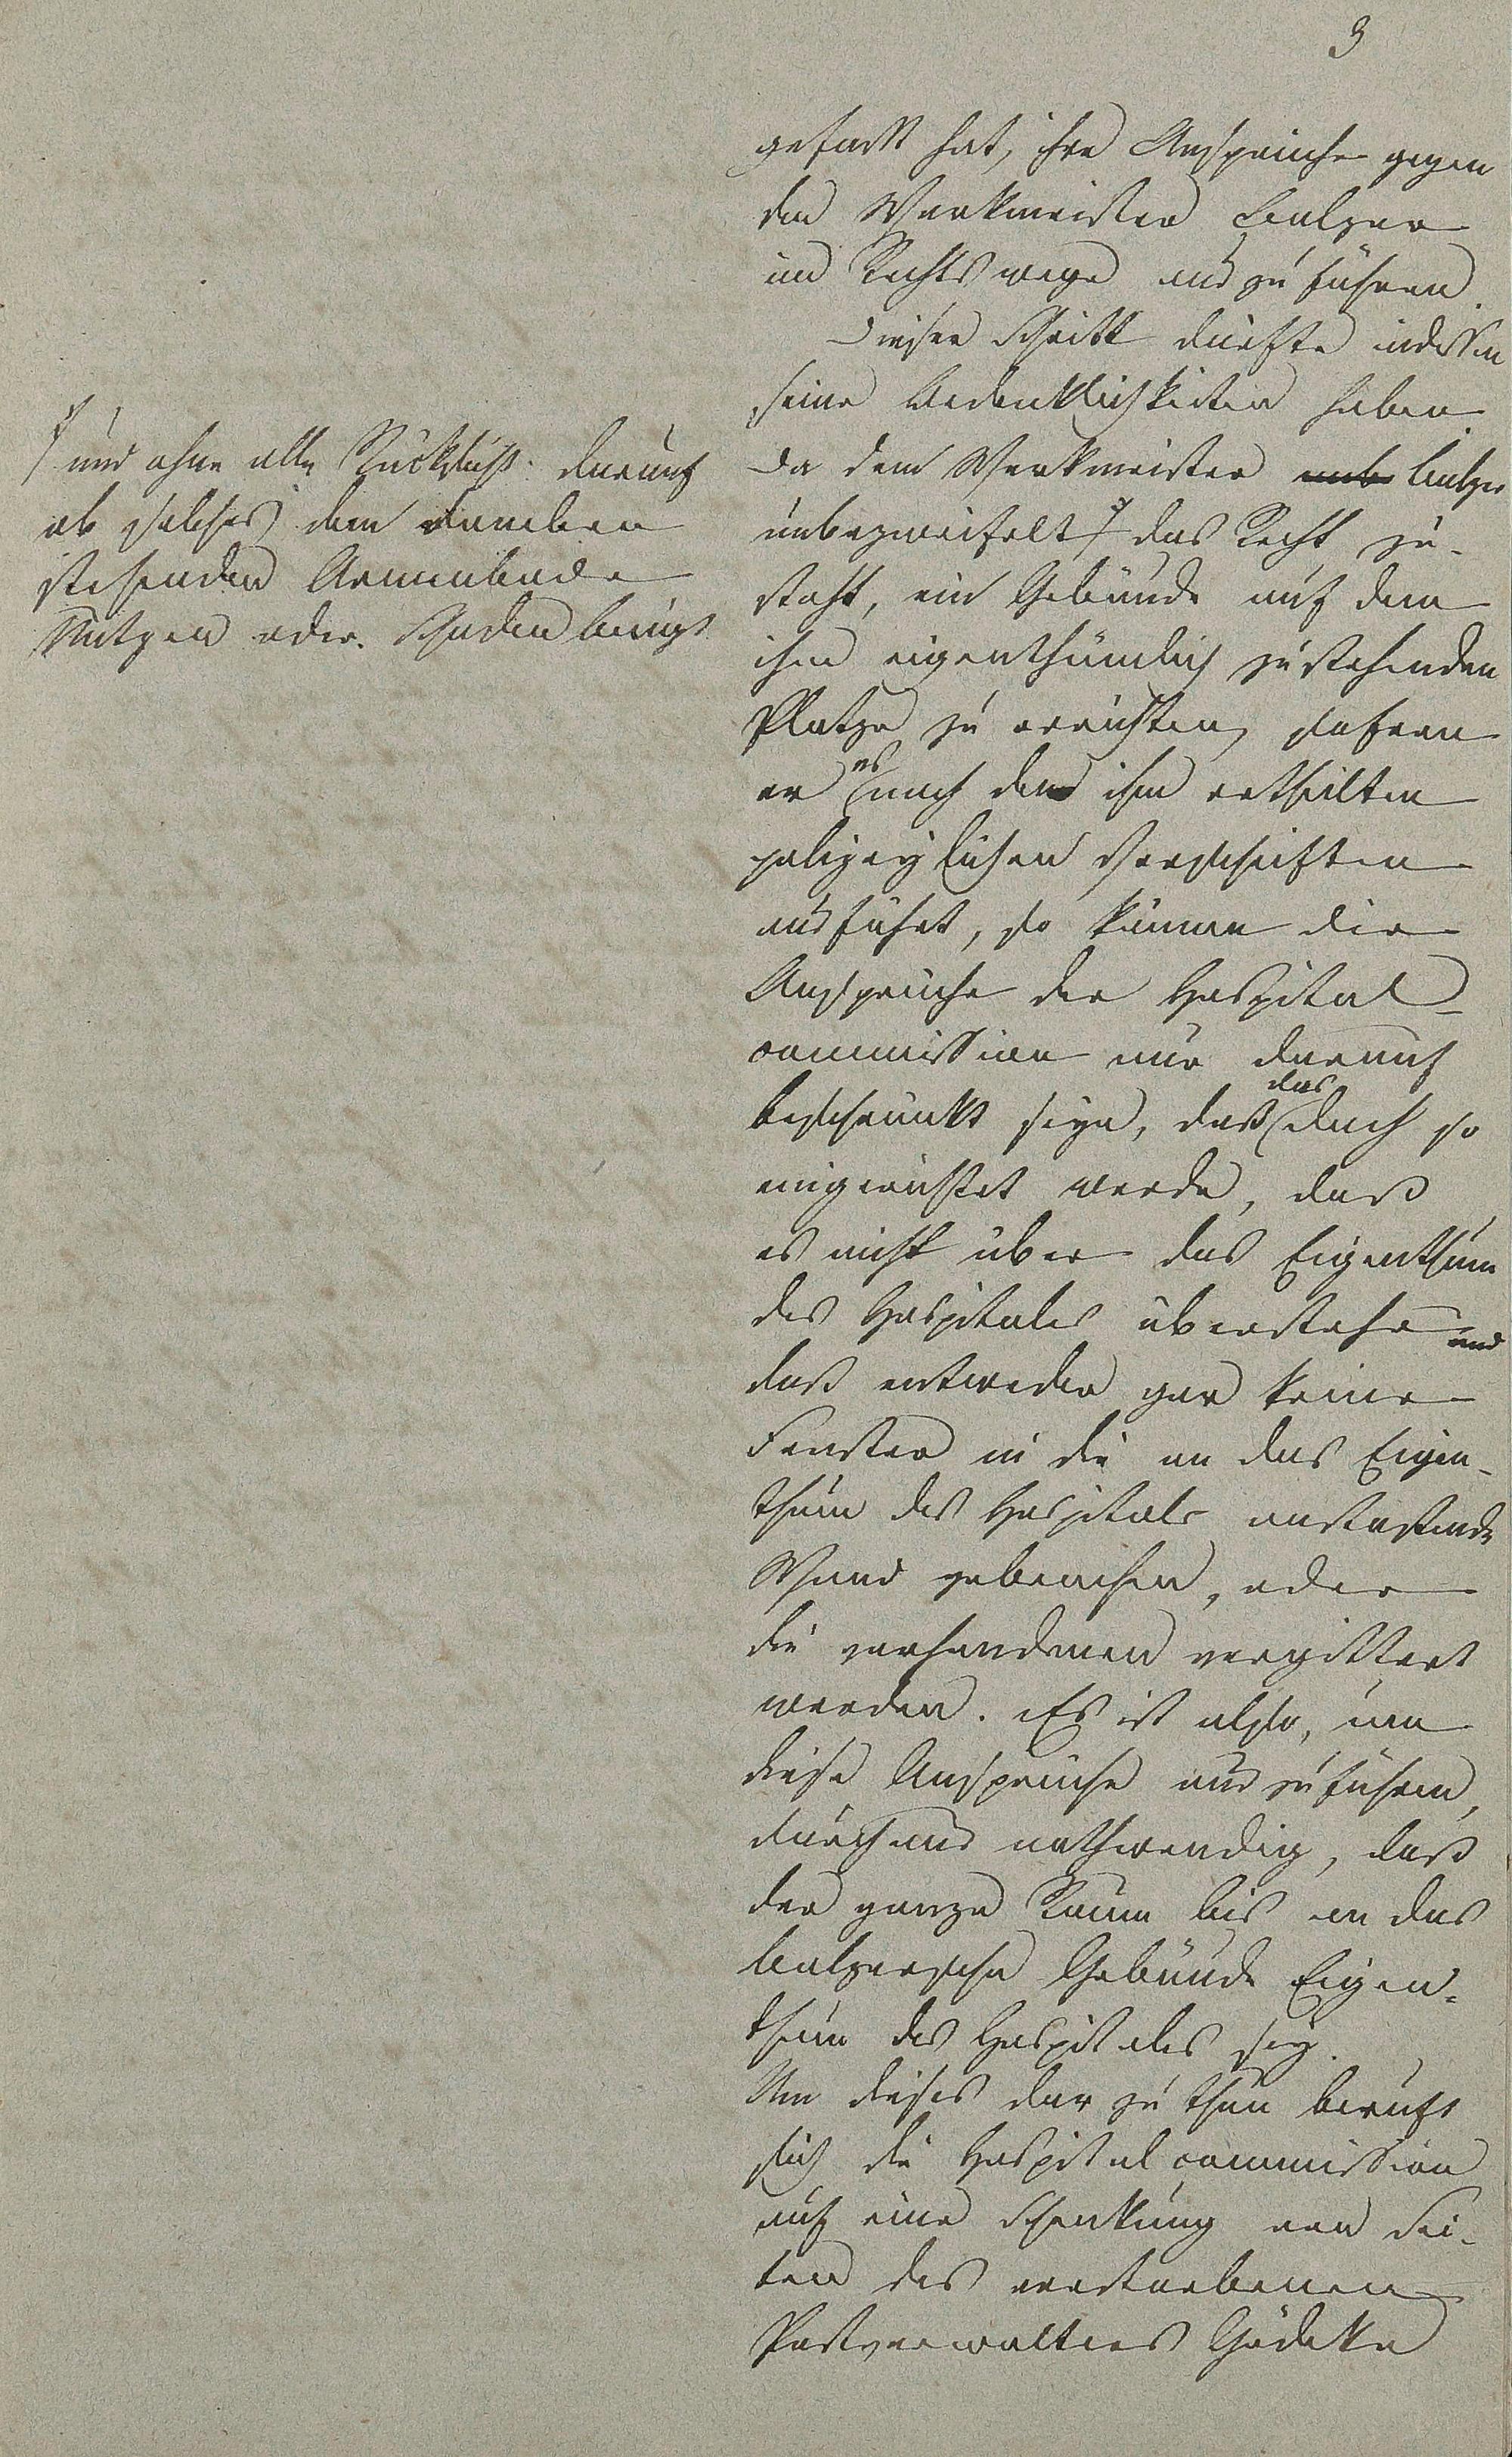 3
gefaßt hat, ihre Ansprüche gegen
den Werkmeister Balzer
im Rechtswege auszuführen.
Dieser Schritt dürfte indessen
seine Bedenklichkeiten haben.
Da dem Werkmeister Balzer
unbezweifelt das Recht zu-
steht, ein Gebäude auf dem
ihm eigenthümlich zustehenden
Platze zu errichten, sofern
er es nach den ihm ertheilten
polizeylichen Vorschriften
ausführt, so können die
Ansprüche der Hospital-
commission nur darauf
beschränkt seyn, daß das Dach so
eingerichtet werde, daß
es nicht über das Eigenthum
des Hospitales überstehe und
daß entweder gar keine
Fenster in die an das Eigen-
thum des Hospitals anstoßende
Wand gebrochen, oder
die vorhandenen vergittert
werden. Es ist also, um
diese Ansprüche auszuführen,
durchaus nothwendig, daß
der ganze Raum bis an das
Balzersche Gebäude Eigen-
thum des Hospitales sey.
Um dieses dar zu thun beruft
sich die Hospitalcommission
auf eine Schenkung von Sei-
ten des verstorbenen
Postverwalters Gödeke
und ohne alle Rücksicht darauf
ob solches dem daneben
stehenden Armenbade
Nutzen oder Schaden bringt